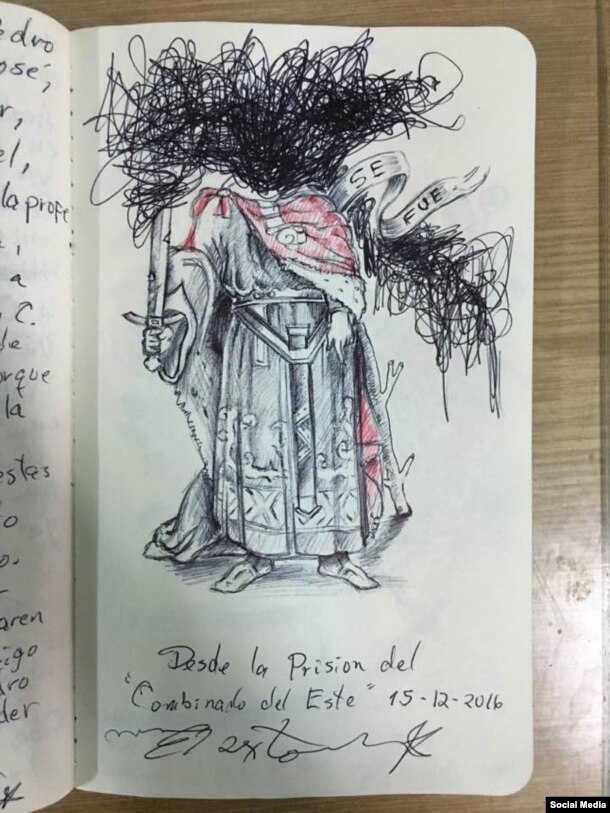 edro
osé,
r,
el,
la profe
a
C.
de
orque
la
estas
o
o.
aren
igo
dro
der
SE
FUE
Desde la Prision del
"Combinado del Este" 15-12-2016
El Sexto
Social Media